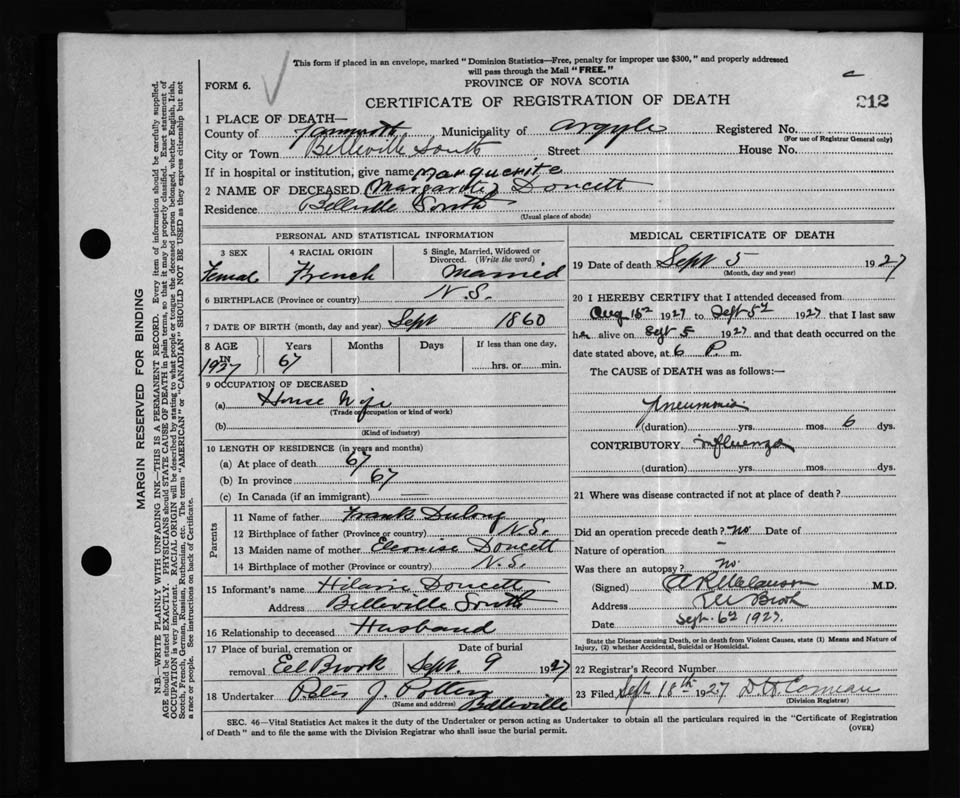 This form if placed in an envelope, marked "Dominion Statistics—Free, penalty for improper use $300," and properly addressed
will pass through the Mail "FREE."
FORM 6.
PROVINCE OF NOVA SCOTIA
CERTIFICATE OF REGISTRATION OF DEATH
212
1 PLACE OF DEATH—
County of Yarmouth Municipality of Argyle Registered No.
(For use of Registrar General only)
City or Town Belleville South Street House No.
If in hospital or institution, give name Marguerite
2 NAME OF DECEASED (Margaret) Doucett
Residence Belleville South
(Usual place of abode)
PERSONAL AND STATISTICAL INFORMATION
3 SEX 4 RACIAL ORIGIN 5 Single, Married, Widowed or
Divorced. (Write the word)
Female French Married
6 BIRTHPLACE (Province or country) N.S.
7 DATE OF BIRTH (month, day and year) Sept 1860
8 AGE Years Months Days If less than one day,
IN 1937 67 hrs. or min.
9 OCCUPATION OF DECEASED
(a) House Wife
(Trade occupation or kind of work)
(b)
(Kind of industry)
10 LENGTH OF RESIDENCE (in years and months)
(a) At place of death 67
(b) In province 67
(c) In Canada (if an immigrant) —
Parents
11 Name of father Frank Dulong
12 Birthplace of father (Province or country) N.S.
13 Maiden name of mother Eleonise Doucett
14 Birthplace of mother (Province or country) N.S.
15 Informant's name Hilaire Doucett
Address Belleville South
16 Relationship to deceased Husband
17 Place of burial, cremation or Date of burial
removal Eel Brook Sept. 9 1927
18 Undertaker Peter J. Pottier
(Name and address) Belleville
MEDICAL CERTIFICATE OF DEATH
19 Date of death Sept 5 1927
(Month, day and year)
20 I HEREBY CERTIFY that I attended deceased from
Aug 1927 to Sept 5th 1927 that I last saw
her alive on Sept 5 1927 and that death occurred on the
date stated above, at 6 P. m.
The CAUSE of DEATH was as follows:—
Pneumonia
(duration) yrs. mos. 6 dys.
CONTRIBUTORY Influenza
(duration) yrs. mos. dys.
21 Where was disease contracted if not at place of death?
Did an operation precede death? No Date of
Nature of operation —
Was there an autopsy? No.
(Signed) M.D.
Address Eel Brook
Date Sept. 6th 1927.
State the Disease causing Death, or in death from Violent Causes, state (1) Means and Nature of
Injury, (2) whether Accidental, Suicidal or Homicidal.
22 Registrar's Record Number
23 Filed Sept 18th 1927 Comeau
(Division Registrar)
SEC. 46—Vital Statistics Act makes it the duty of the Undertaker or person acting as Undertaker to obtain all the particulars required in the "Certificate of Registration
of Death" and to file the same with the Division Registrar who shall issue the burial permit.
(OVER)
MARGIN RESERVED FOR BINDING
N.B.—WRITE PLAINLY WITH UNFADING INK—THIS IS A PERMANENT RECORD. Every item of information should be carefully supplied.
AGE should be stated EXACTLY. PHYSICIANS should STATE CAUSE OF DEATH in plain terms, so that it may be properly classified. Exact statement of
OCCUPATION is very important. RACIAL ORIGIN will be described by stating to what people or tongue the deceased person belonged, whether English, Irish,
Scotch, French, German, Russian, Ruthenian, etc. The terms "AMERICAN" or "CANADIAN" SHOULD NOT BE USED as they express citizenship but not
a race or people. See instructions on back of Certificate.